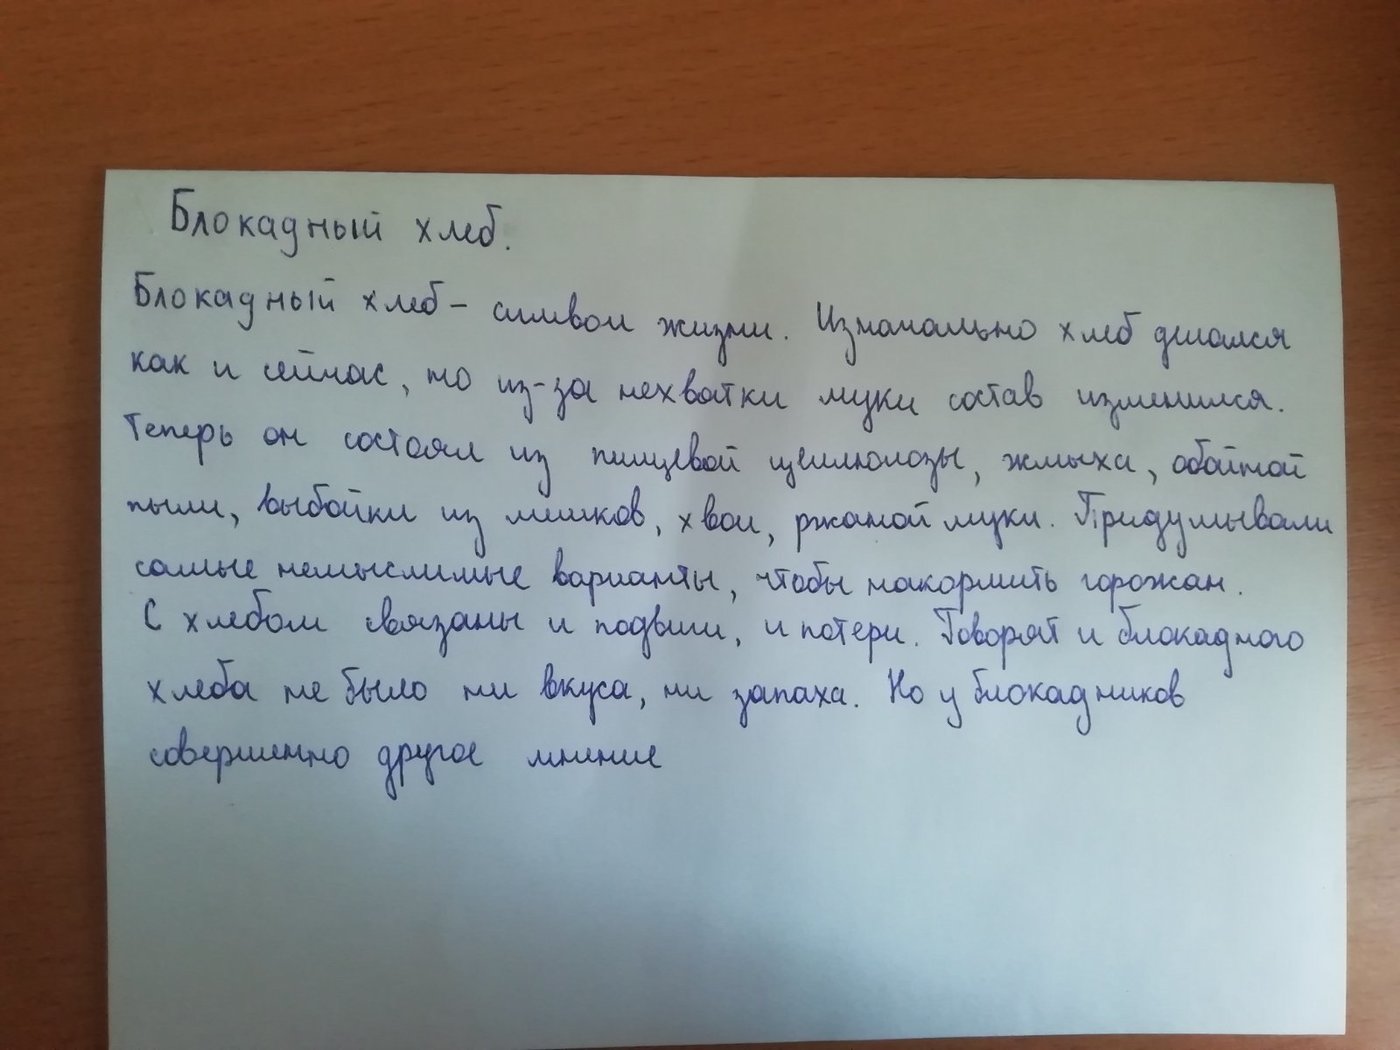 Блокадный хлеб.
Блокадный хлеб - символ жизни. Изначально хлеб делался
как и сейчас, но из-за нехватки муки состав изменился.
Теперь он состоял из пищевой целлюлозы, жмыха, обойной
пыли, выбойки из мешков, хвои, ржаной муки. Придумывали
самые немыслимые варианты, чтобы накормить горожан.
С хлебом связаны и подвиги, и потери. Говорят и блокадного
хлеба не было ни вкуса, ни запаха. Но у блокадников
совершенно другое мнение